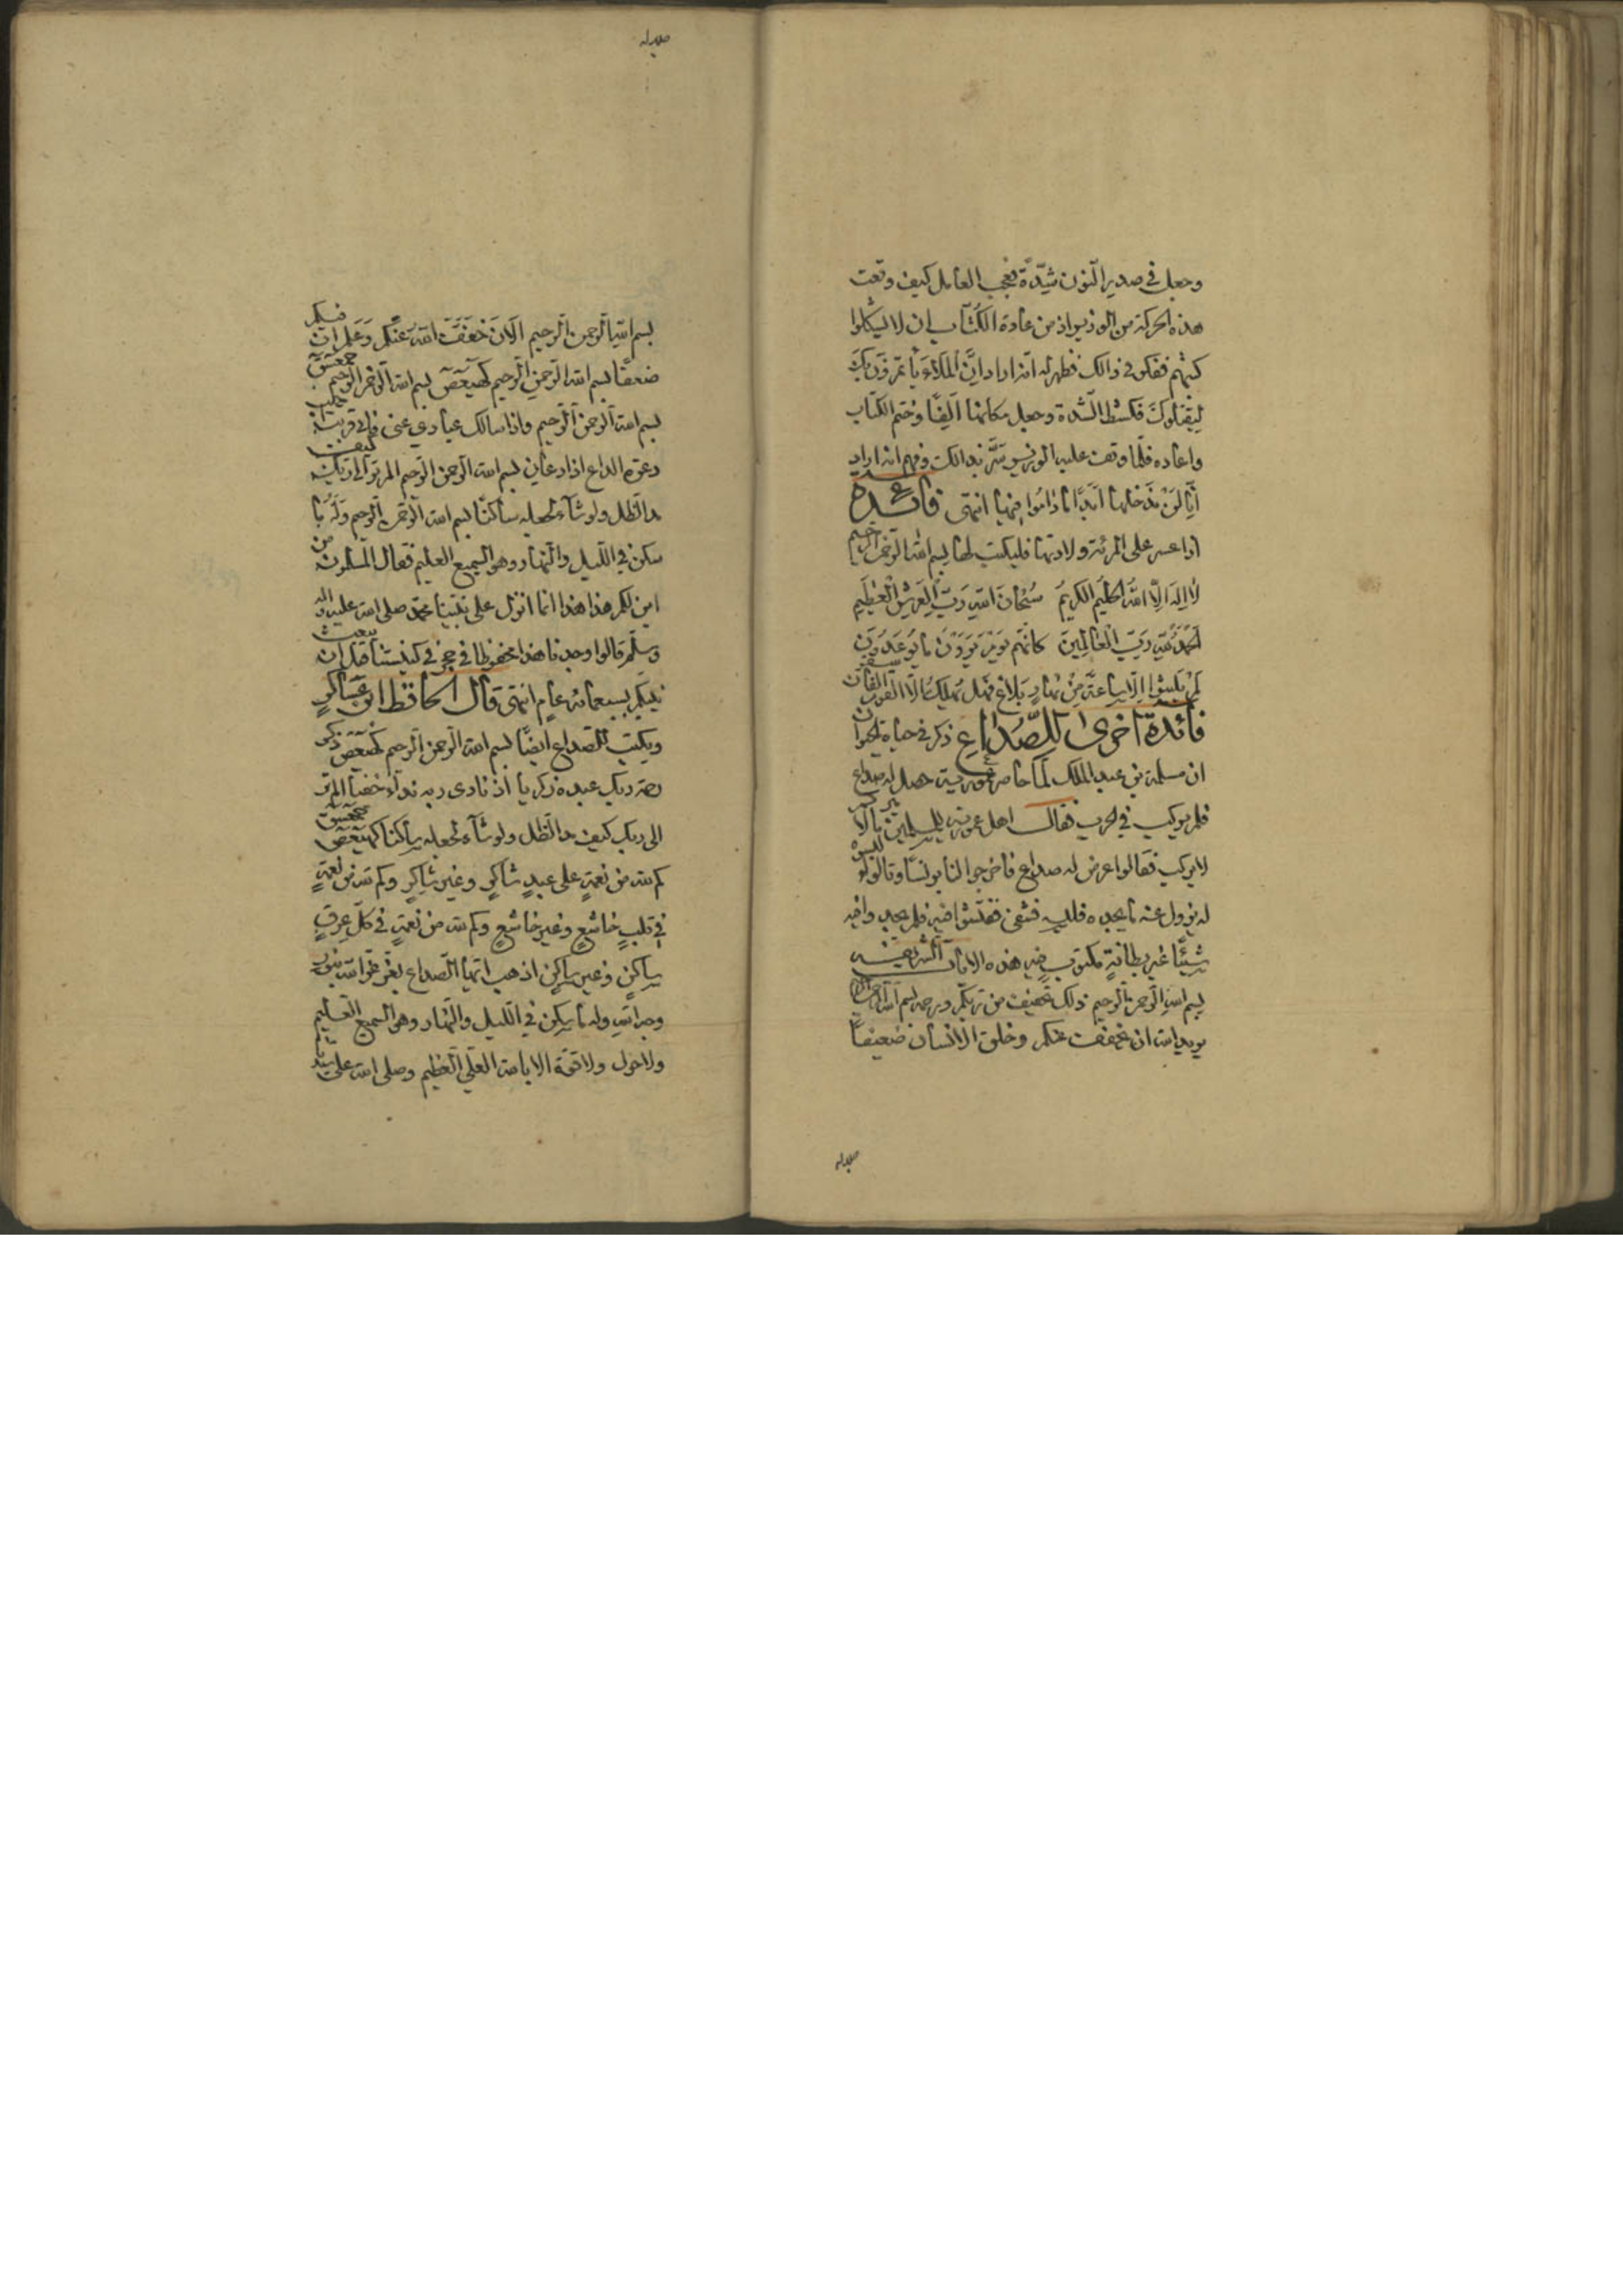 وجعل في صدر النون شدّة فعجب العامل كيف وقعت
هذه الحركة من الوزير اذ من عادة الكُتّاب ان لا يشكلوا
كتبهم ففكر في ذالك فظهر له انه اراد اِنَّ المَلَاَءَ يأتمرون بك
لِيَقتلوكَ فكشط الشدة وجعل مكانها اَلِفًا وختم الكتاب
واعاده فلمّا وقف عليه الوزير سُرَّ بذالك وفهم انه اراد
اِنّا لَنْ نَدخلها اَبَدًا مَا دَامُوا فِيهَا انتهى فائدة
اذا عسر على المرئة ولادتها فليكتب لها بسم الله الرحمن الرحيم
لا اله الّا الله الحليم الكريم سُبْحَانَ اللهِ رَبِّ العَرشِ العَظِيمِ
الحَمْدُ لله رَبِّ العَالَمِينَ كانهم يَوْمَ يَرَوْنَ مَا يُوعَدُونَ
لَمْ يَلبثوا اِلَّا سَاعَةً مِنْ نَهَارٍ بَلَاغٌ فهل يُهلَكُ الّا القوم الفاسقون
فائدة اخرى للصُّدَاعِ ذكر في حياة الحيوان
ان مسلمة بن عبد الملك لما حاصر عمورية حصل له صداع
فلم يركب في الحرب فقال اهل عمورية للمسلمين ما لاميركم
لا يركب فقالوا عرض له صداع فاخرجوا لنا برنسًا وقالوا لو لبسوه
له يزول عنه ما يجده فلبسه فشفى ففتّشوا فيه فلم يجدوا فيه
شيئًا غير بطانةٍ مكتوب فيه هذه الايات الشريفة
بسم الله الرحمن الرحيم ذلك تخفيف من ربكم ورحمة بسم الله الرحمن الرحيم
يريد الله ان يخفف عنكم وخلق الانسان ضعيفاً
بسم الله الرحمن الرحيم الآن خَفَّفَ الله عَنْكم وَعَلِمَ ان فيكم
ضعفًا بسم الله الرحمن الرحيم كهيعص بسم الله الرحمن الرحيم حمعسق
بسم الله الرحمن الرحيم واذا سالك عبادي عنى فاني قريب اجيب
دعوة الداع اذا دعان بسم الله الرحمن الرحيم الم تر الى ربك كيف
مد الظل ولو شآء لجعله ساكنًا بسم الله الرحمن الرحيم وَلَهُ مَا
سكن في الليل والنهار وهو السميع العليم فقال المسلمون من
اين لكم هذا هذا انما انزل على نبيّنا محمد صلى الله عليه واله
وسلم قالوا وجدنا هذا محفوظا في حجر في كنيستنا قبل ان يبعث
نبيكم بسبعمائة عام انتهى قال الحافظ ابن عساكرٍ
ويكتب للصداع ايضًا بسم الله الرحمن الرحيم كهيعص ذكر
رحمة ربك عبده زكريا اذ نادى ربه ندآء خفيا الم تر
الى ربك كيف مد الظل ولو شآء لجعله ساكنا كهيعص حمعسق
كم لله من نعمةٍ على عبدٍ شاكرٍ وغير شاكرٍ وكم لله من نعمةٍ
في قلبٍ خاشعٍ وغير خاشعٍ وكم لله من نعمةٍ في كلّ عرقٍ
ساكنٍ وغير ساكنٍ اذهب ايها الصداع بعزّ عزّ الله بنور
وجه الله وله ما سكن في الليل والنهار وهو السميع العليم
ولا حول ولا قوّة الا بالله العلي العظيم وصلى الله على سيدنا